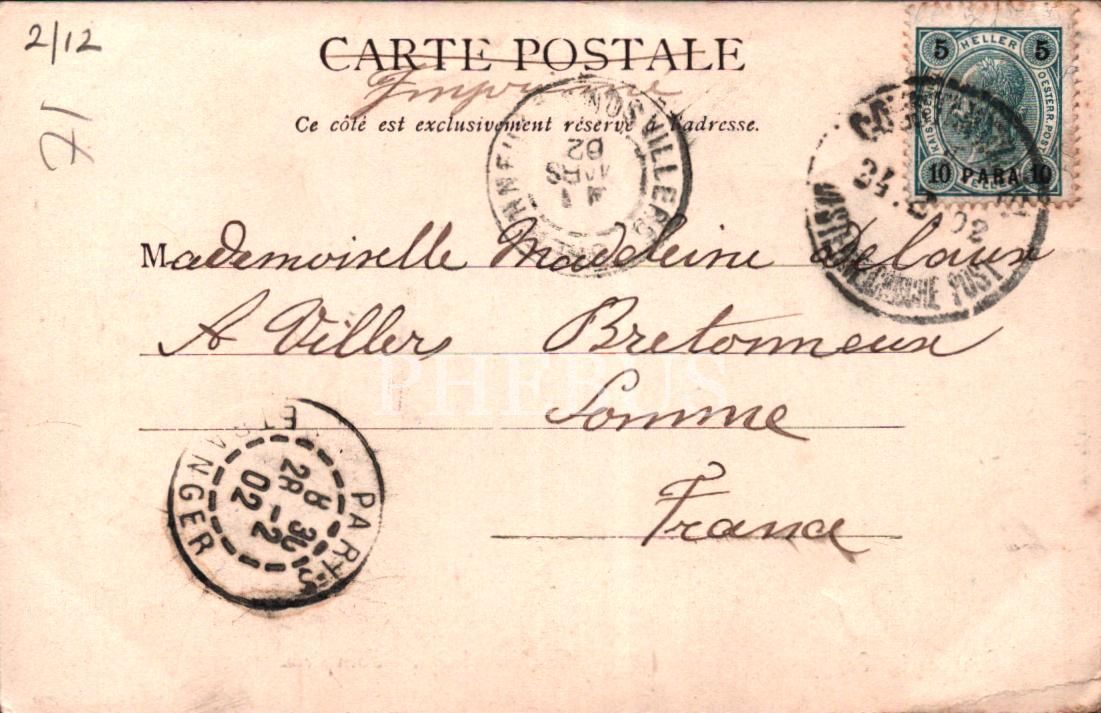 2/12
71
CARTE POSTALE
Imprimé
Ce côté est exclusivement réservé à l'adresse.
5 HELLER 5
10 PARA 10
OESTERR. POST
ÖSTERREICHISCHE POST
VILLERS
1 MARS 02
Mademoiselle Madeleine Delaux
A Villers Bretonneux
Somme
France
PHEBUS
PARIS ETRANGER
8 30
28 -2
02